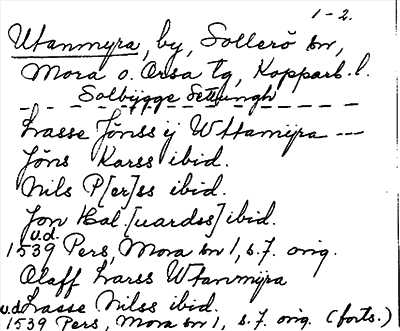 1-2.
Utanmyra, by, Sollerö sn,
Mora o. Orsa tg, Kopparb. l.
Solbÿgge Settungh
Lasse Jönss ÿ Wttamÿra ---
Jöns Larss ibid.
Nils P[er]ss ibid.
Jon Hal[uardss] ibid.
u.d.
1539 Pers, Mora sn 1, s. 7. orig.
Olaff Larss Wtanmÿra
u.d. Lasse Nilss ibid.
1539 Pers, Mora sn 1, s. 7. orig. (forts.)